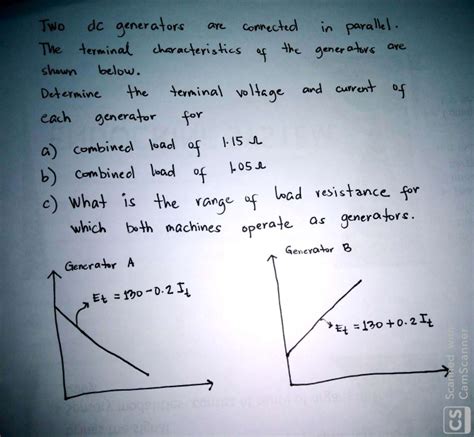 Two dc generators are connected in parallel.
The terminal characteristics of the generators are
shown below.
Determine the terminal voltage and current of
each generator for
a) combined load of 1.15 Ω
b) combined load of 1.05 Ω
c) What is the range of load resistance for
which both machines operate as generators.
Generator A
Et = 130 - 0.2 It
Generator B
Et = 130 + 0.2 It
CS Scanned with
CamScanner